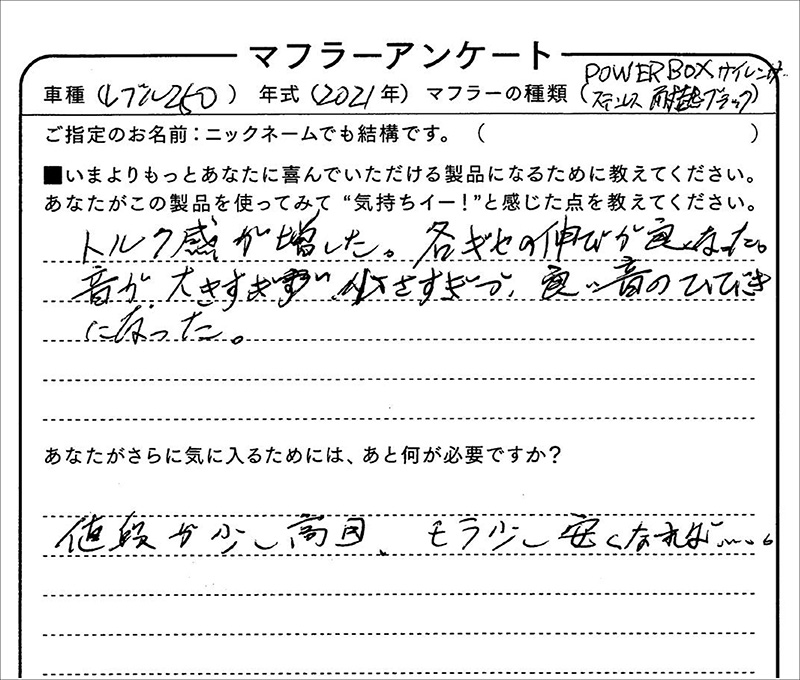 マフラーアンケート
車種（レブル250） 年式（2021年） マフラーの種類（POWERBOX サイレンサー ステンレス 耐熱ブラック）
ご指定のお名前：ニックネームでも結構です。（ ）
■いまよりもっとあなたに喜んでいただける製品になるために教えてください。
あなたがこの製品を使ってみて “気持ちイー！”と感じた点を教えてください。
トルク感が増した。各ギヤの伸びが良くなった。
音が、大きすぎず 小さすぎず、良い音のひびき
になった。
あなたがさらに気に入るためには、あと何が必要ですか？
値段が少し高目、モウ少し安くなれば……。